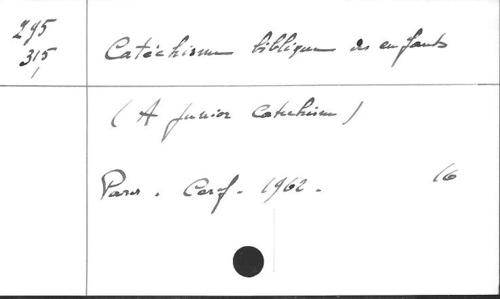 295
315
Catéchisme biblique des enfants
(A junior catechism)
Paris. Cerf. 1962.
16